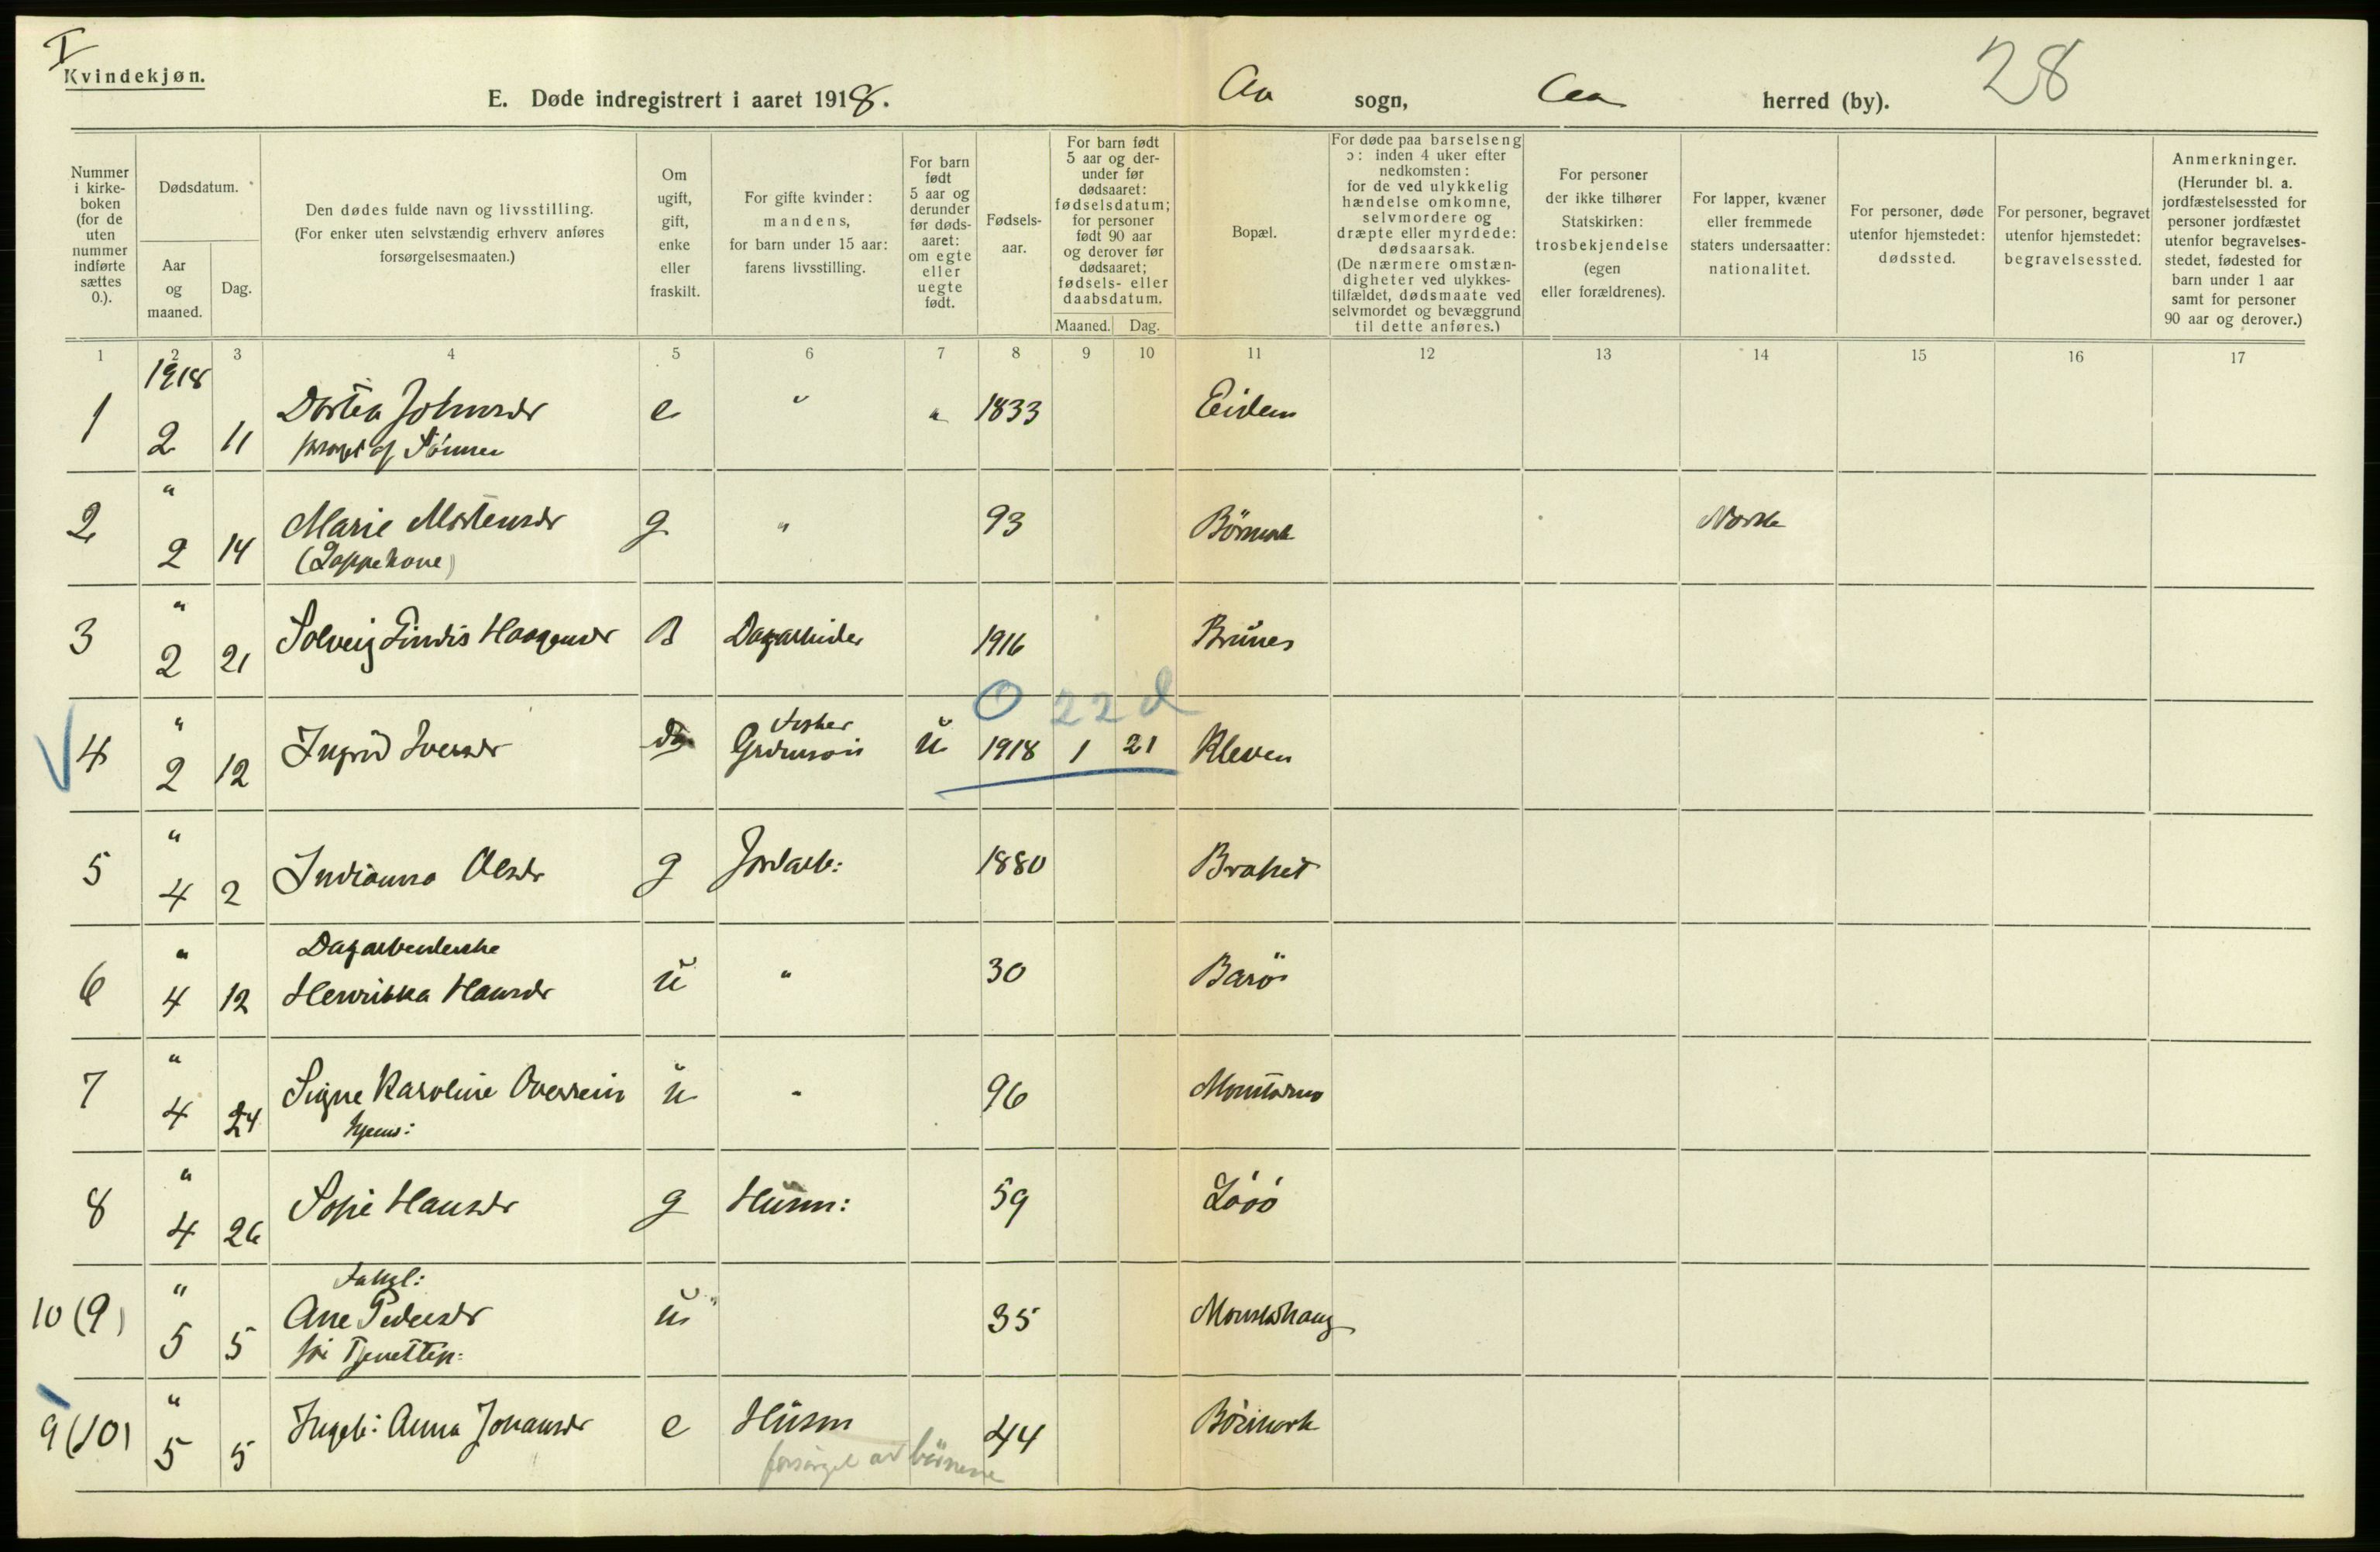 I
Kvindekjøn.
E. Døde indregistrert i aaret 1918.
Aa sogn, Aa herred (by).
28
Nummer i kirke-boken (for de uten nummer indførte sættes 0.).
Dødsdatum.
Aar og maaned.
Dag.
Den dødes fulde navn og livsstilling.
(For enker uten selvstændig erhverv anføres
forsørgelsesmaaten.)
Om ugift, gift, enke eller fraskilt.
For gifte kvinder:
mandens,
for barn under 15 aar:
farens livsstilling.
For barn født 5 aar og derunder før døds-aaret: om egte eller uegte født.
Fødsels-aar.
For barn født 5 aar og der-under før dødsaaret: fødselsdatum; for personer født 90 aar og derover før dødsaaret; fødsels- eller daabsdatum.
Maaned.
Dag.
Bopæl.
For døde paa barselseng
ɔ: inden 4 uker efter
nedkomsten:
for de ved ulykkelig
hændelse omkomne,
selvmordere og
dræpte eller myrdede:
dødsaarsak.
(De nærmere omstæn-
digheter ved ulykkes-
tilfældet, dødsmaate ved
selvmordet og bevæggrund
til dette anføres.)
For personer
der ikke tilhører
Statskirken:
trosbekjendelse
(egen
eller forældrenes).
For lapper, kvæner
eller fremmede
staters undersaatter:
nationalitet.
For personer, døde
utenfor hjemstedet:
dødssted.
For personer, begravet
utenfor hjemstedet:
begravelsessted.
Anmerkninger.
(Herunder bl. a.
jordfæstelsessted for
personer jordfæstet
utenfor begravelses-
stedet, fødested for
barn under 1 aar
samt for personer
90 aar og derover.)
1 2 3 4 5 6 7 8 9 10 11 12 13 14 15 16 17
1918
1 2 11 Dortea Johnsdr e " " 1833 Eidem
forsørget af Sønnen
2 " 2 14 Marie Mortensdr g " 93 Börmark Norsk
(Lappekone)
3 " 2 21 Solveig Lindis Haagensdr B Dagarbeider 1916 Brünes
0 22 d
4 " 2 12 Ingrid Iversdr Fisker ü 1918 1 21 Kleven
5 " 4 2 Indianna Olsdr g Jordarb: 1880 Braset
Dagarbeiderske
6 " 4 12 Henrikka Hansdr ü " 30 Barö
7 " 4 24 Signe Karoline Overrein ü - 96
hjems:
8 " 4 26 Sofie Hansdr g Hüsm: 59
Fattigl:
10 (9) " 5 5 Ane Pedersdr ü " 35 Monshaug
9 (10) " 5 5 Ingeb: Anna Johansdr e Hüsm 44 Börmark
forsörget av börnene